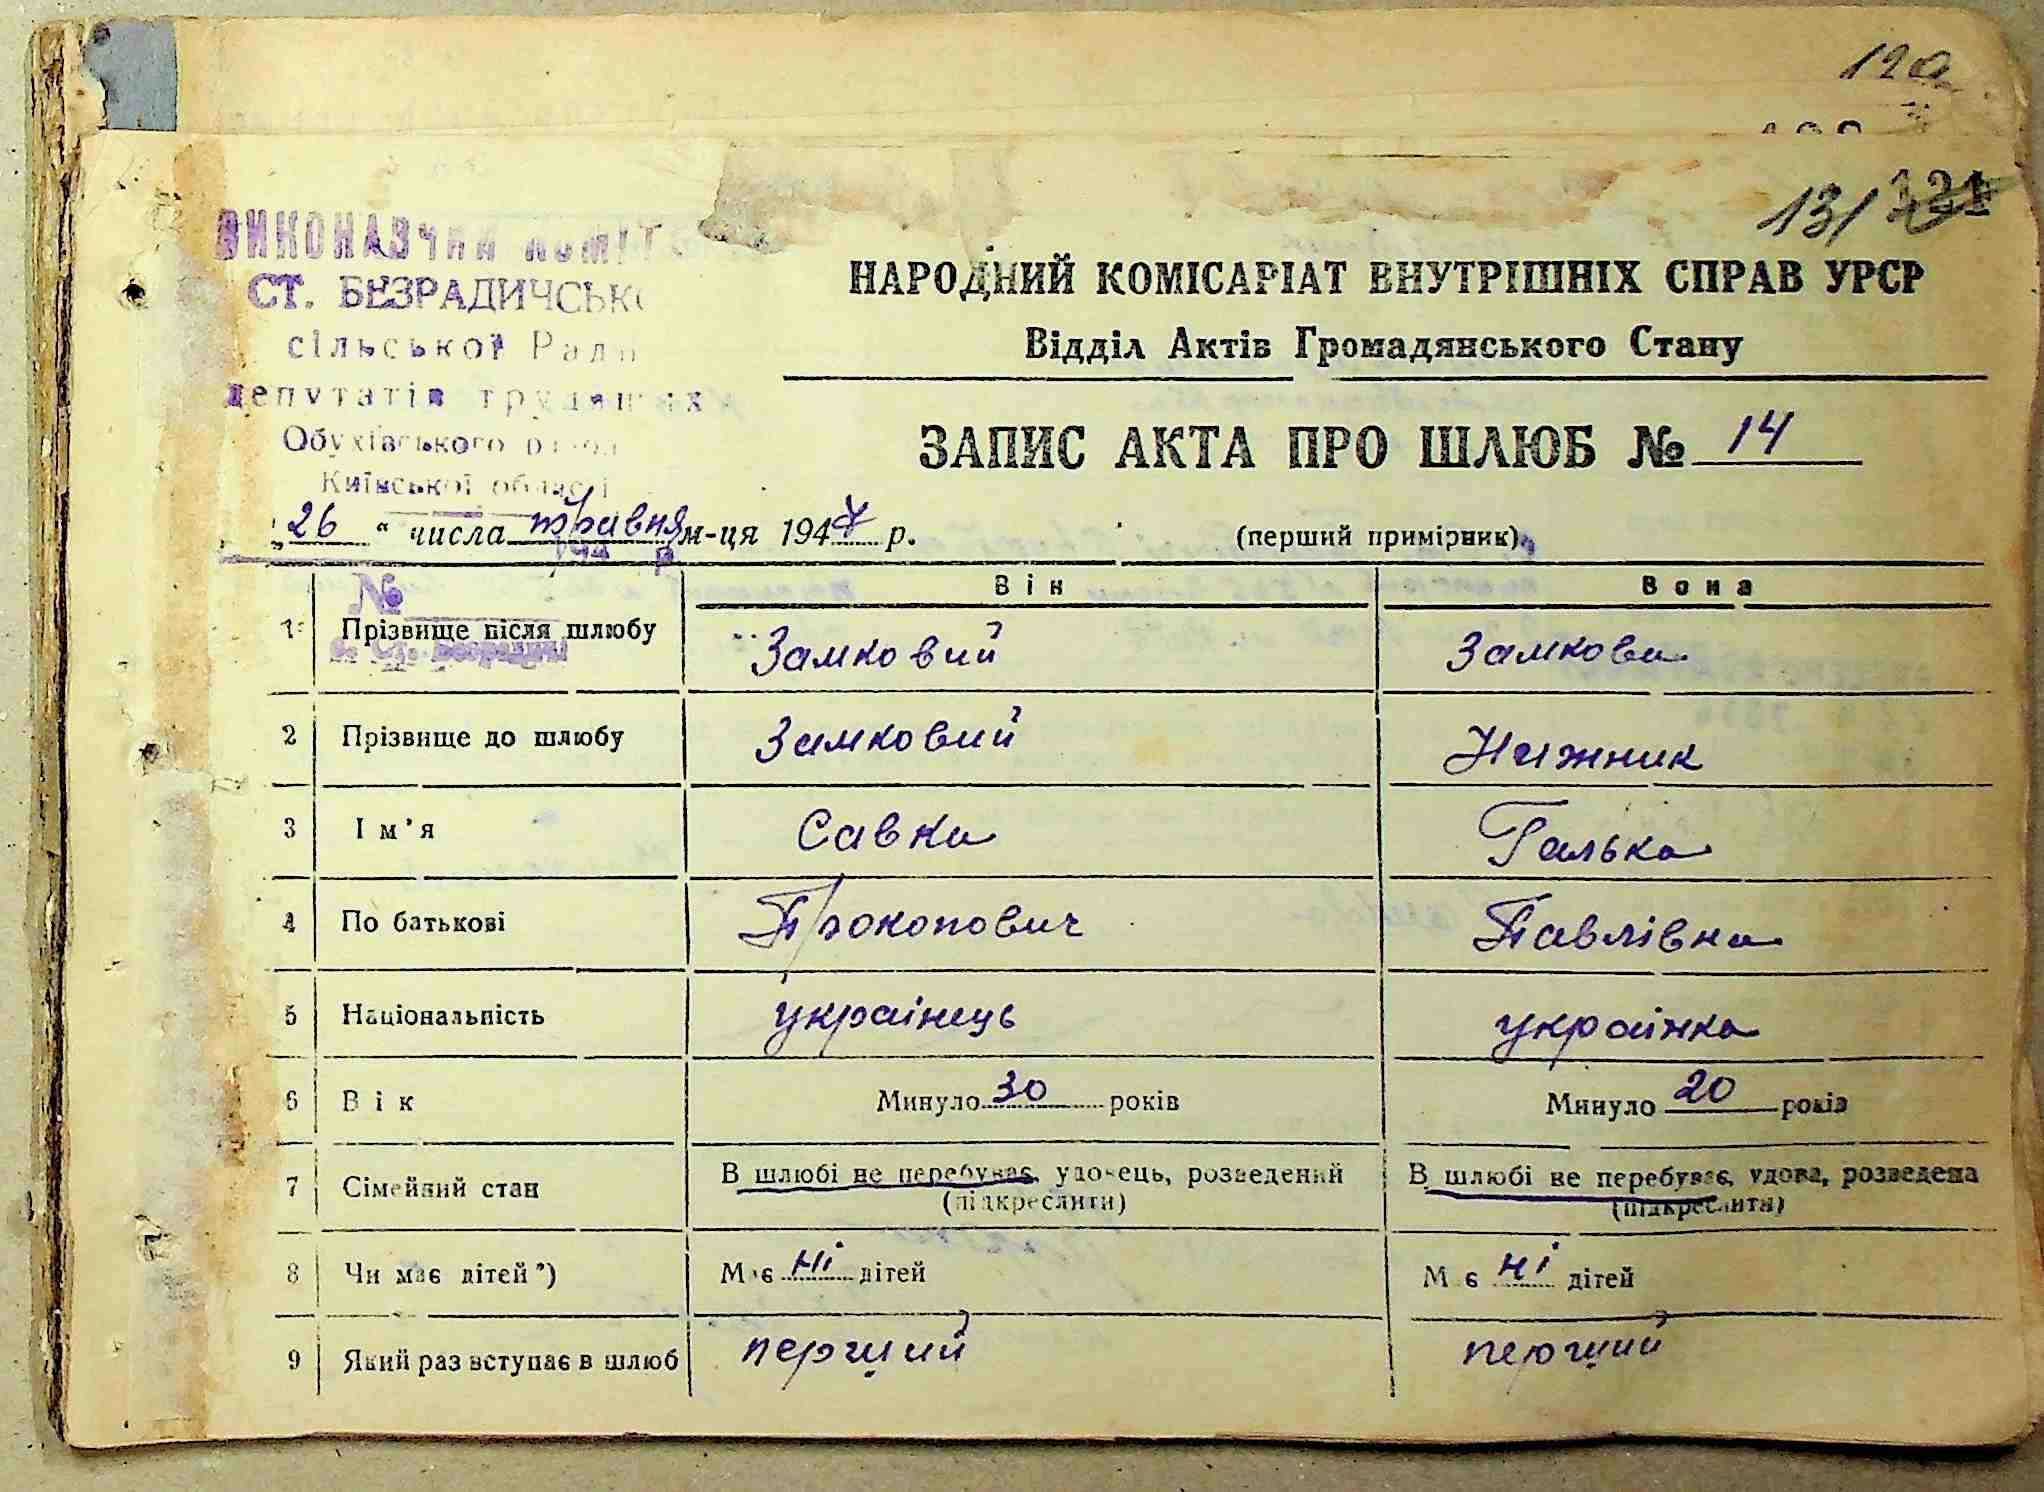 12а
13/ 131
ВИКОНАВЧИЙ КОМІТ
СТ. БЕЗРАДИЧСЬКО
сільської Ради
депутатів трудящих
Обухівського
Київської області
НАРОДНИЙ КОМІСАРІАТ ВНУТРІШНІХ СПРАВ УРСР
Відділ Актів Громадянського Стану
ЗАПИС АКТА ПРО ШЛЮБ № 14
„26“ числа травня м-ця 1947 р. (перший примірник)
№
Він Вона
1 Прізвище після шлюбу Замковий Замкова
с. Ст. Безрадичі
2 Прізвище до шлюбу Замковий Нижник
3 Ім'я Савка Галька
4 По батькові Прокопович Павлівна
5 Національність українець українка
6 Вік Минуло 30 років Минуло 20 років
7 Сімейний стан В шлюбі не перебуває, удовець, розведений (підкреслити) В шлюбі не перебуває, удова, розведена (підкреслити)
8 Чи має дітей*) Має ні дітей Має ні дітей
9 Який раз вступає в шлюб перший перший